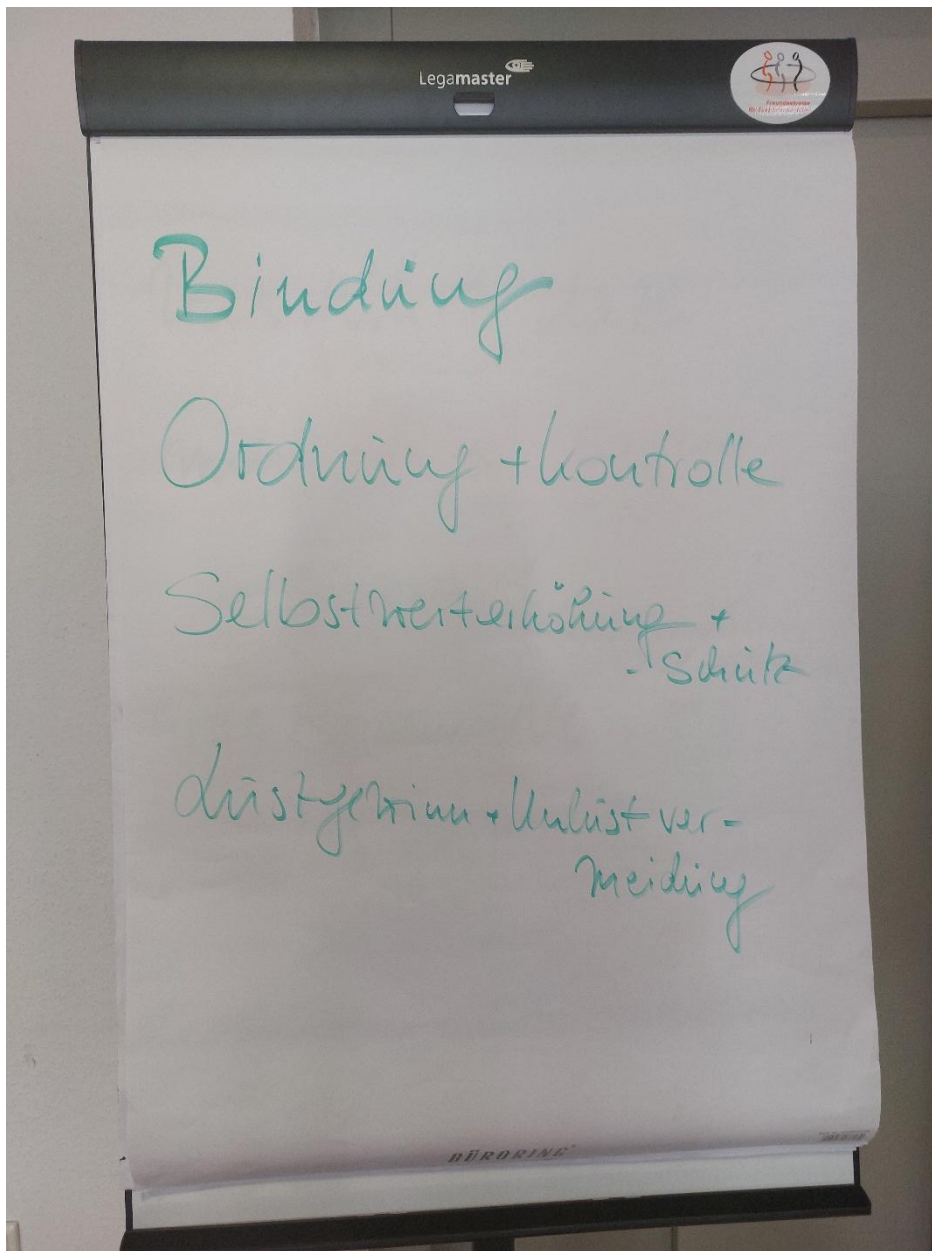 Legamaster
Freundeskreise
Bindung
Ordnung + Kontrolle
Selbstwerterhöhung +
- Schutz
Lustgewinn + Unlustver-
meidung
BÜRORING